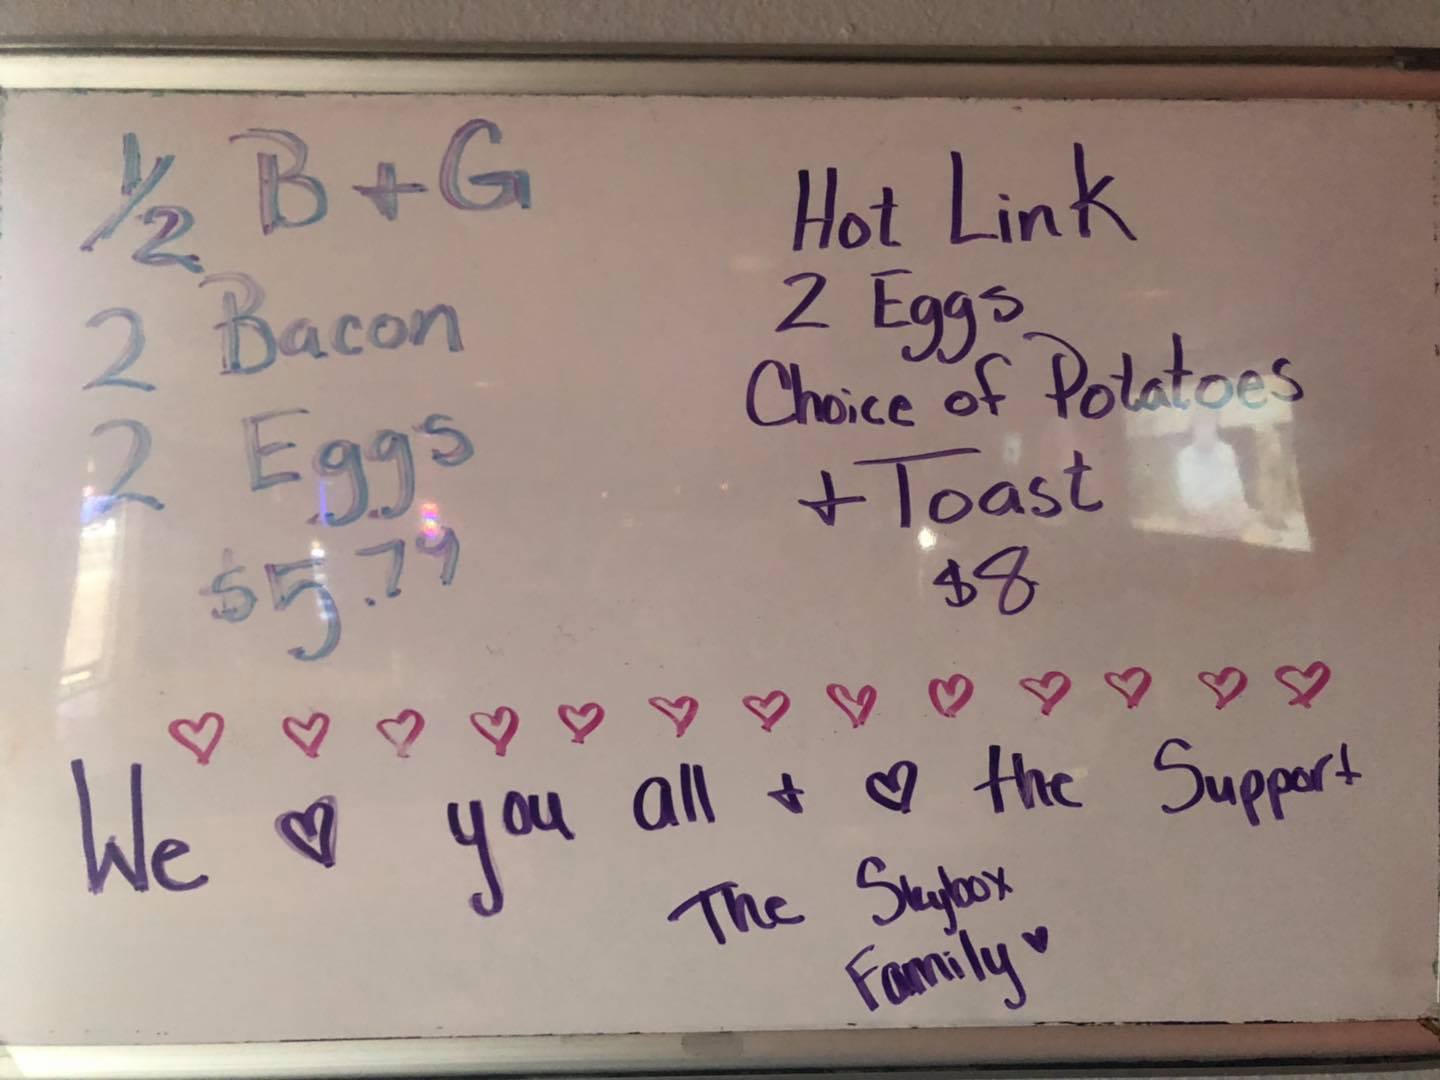 1/2 B + G
2 Bacon
2 Eggs
$5.79
Hot Link
2 Eggs
Choice of Potatoes
+ Toast
$8
♡ ♡ ♡ ♡ ♡ ♡ ♡ ♡ ♡ ♡ ♡ ♡ ♡
We ♡ you all + ♡ the Support
The Skybox
Family ♥